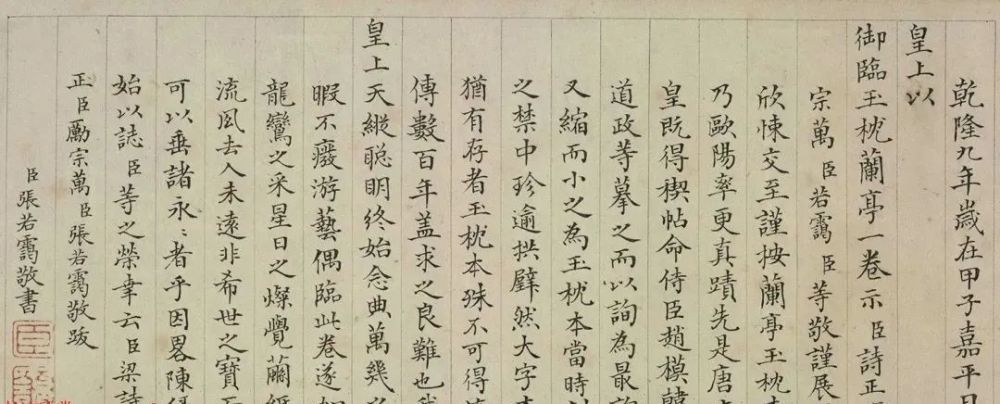 乾隆九年歲在甲子嘉平
皇上以
御臨玉枕蘭亭一卷示臣詩正
宗萬臣若靄臣等敬謹展
欣悚交至謹按蘭亭玉枕
乃歐陽率更真蹟先是唐
皇既得禊帖命侍臣趙模韓
道政等摹之而以詢為最
又縮而小之為玉枕本當時
之禁中珍逾拱璧然大字
猶有存者玉枕本殊不可得
傳數百年盖求之良難也
皇上天縱聰明終始念典萬幾
暇不癈游藝偶臨此卷遂
龍鸞之采星日之燦覺蘭
流風去人未遠非希世之寶
可以垂諸永〻者乎因畧陳
始以誌臣等之榮幸云臣梁詩
正臣勵宗萬臣張若靄敬跋
臣張若靄敬書